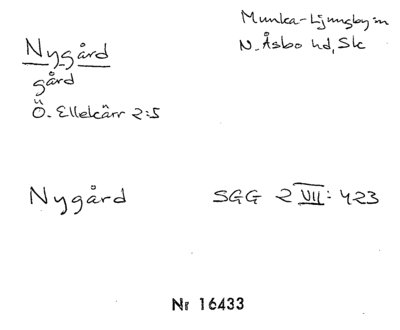 Munka-Ljungby sn
N. Åsbo hd, Sk
Nygård
gård
Ö. Ellekärr 2:5
Nygård SGG 2 VII: 423
Nr 16433